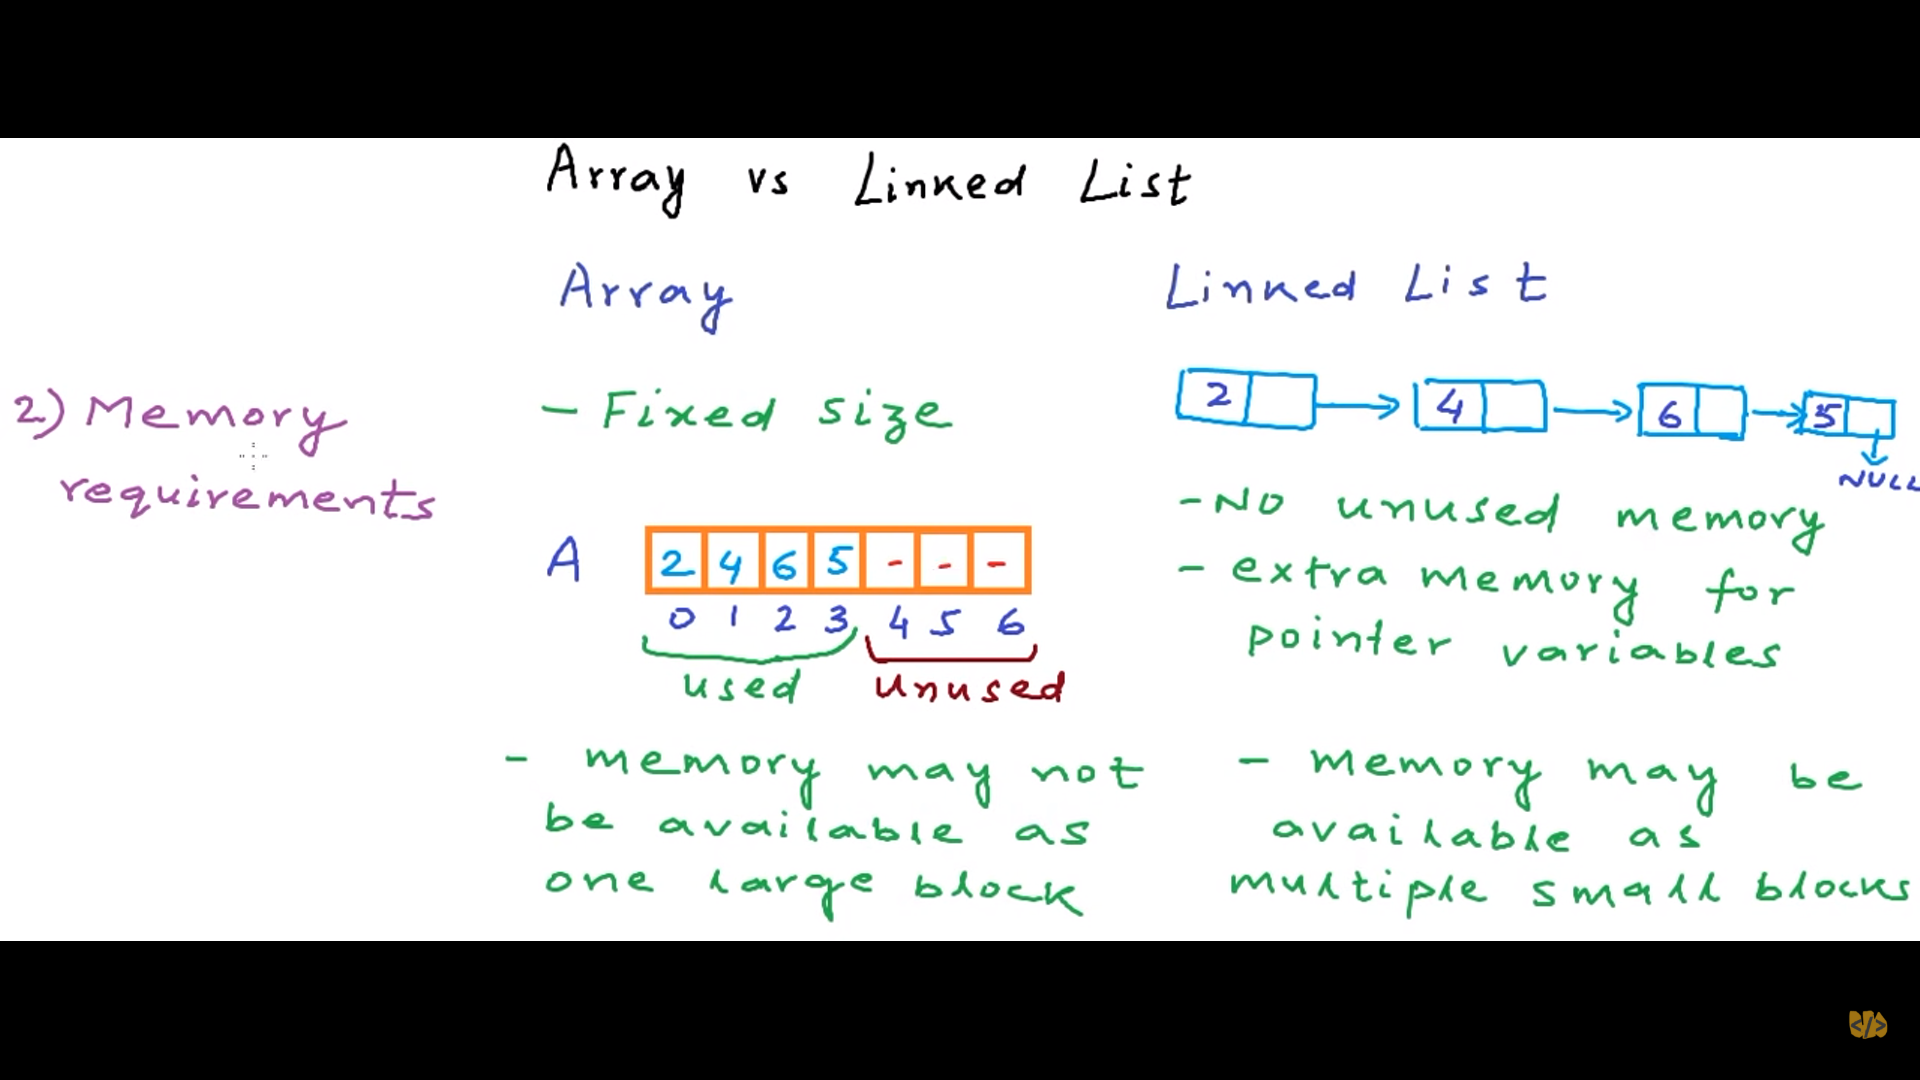 Array vs Linked List
Array
Linked List
2) Memory
requirements
- Fixed size
A
2 4 6 5 - - -
0 1 2 3 4 5 6
used
unused
- memory may not
be available as
one large block
2
4
6
5
NULL
- No unused memory
- extra memory for
pointer variables
- memory may be
available as
multiple small blocks
</>